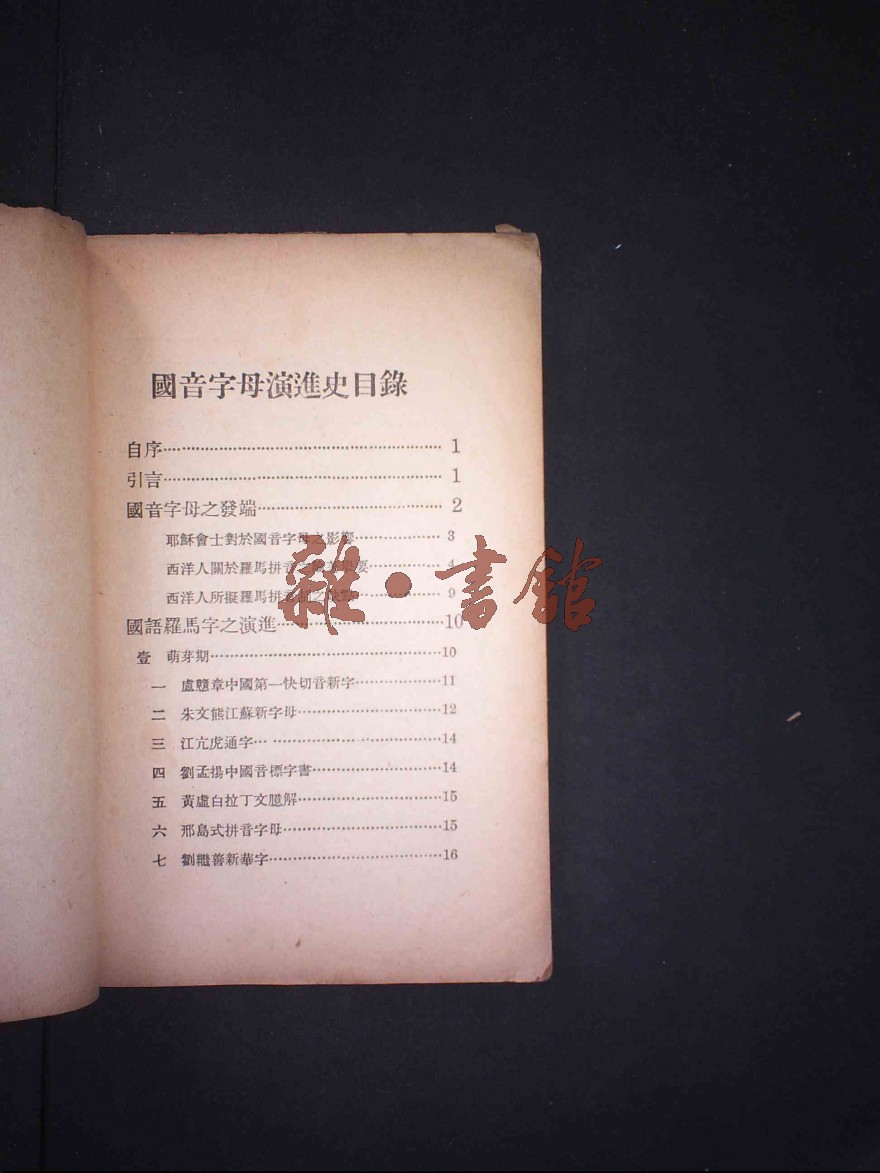 國音字母演進史目錄
自序 1
引言 1
國音字母之發端 2
耶穌會士對於國音字母之影響 3
西洋人關於羅馬拼音之 要 4
西洋人所擬羅馬拼音 之缺點 9
國語羅馬字之演進 10
壹 萌芽期 10
一 盧戇章中國第一快切音新字 11
二 朱文熊江蘇新字母 12
三 江亢虎通字 14
四 劉孟揚中國音標字書 14
五 黃虛白拉丁文臆解 15
六 邢島式拼音字母 15
七 劉繼善新華字 16
雜·書館